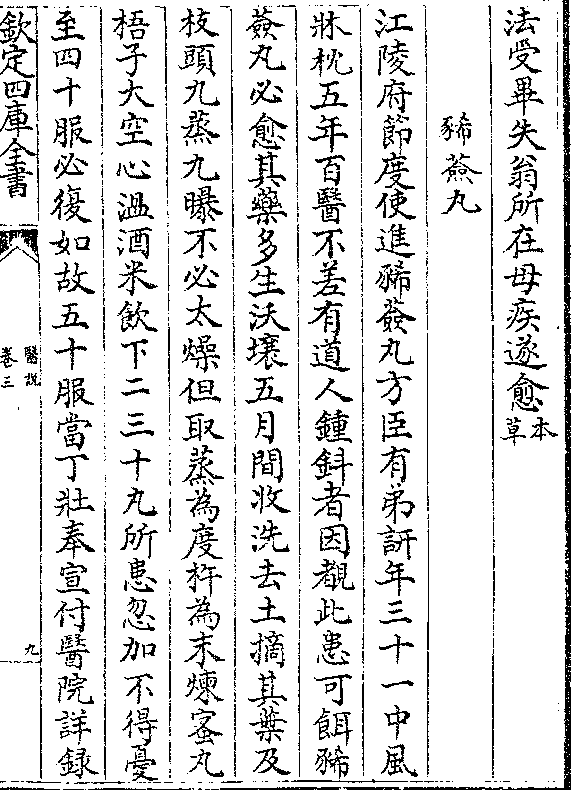 法受畢失翁所在母疾遂愈本草
豨薟丸
江陵府節度使進豨薟丸方臣有弟訮年三十一中風
牀枕五年百醫不差有道人鍾鈄者因覩此患可餌豨
薟丸必愈其藥多生沃壤五月間收洗去土摘其葉及
枝頭九蒸九曝不必太燥但取蒸為度杵為末煉蜜丸
梧子大空心温酒米飲下二三十丸所患忽加不得憂
至四十服必復如故五十服當丁壯奉宣付醫院詳録
欽定四庫全書
醫說
卷三
九